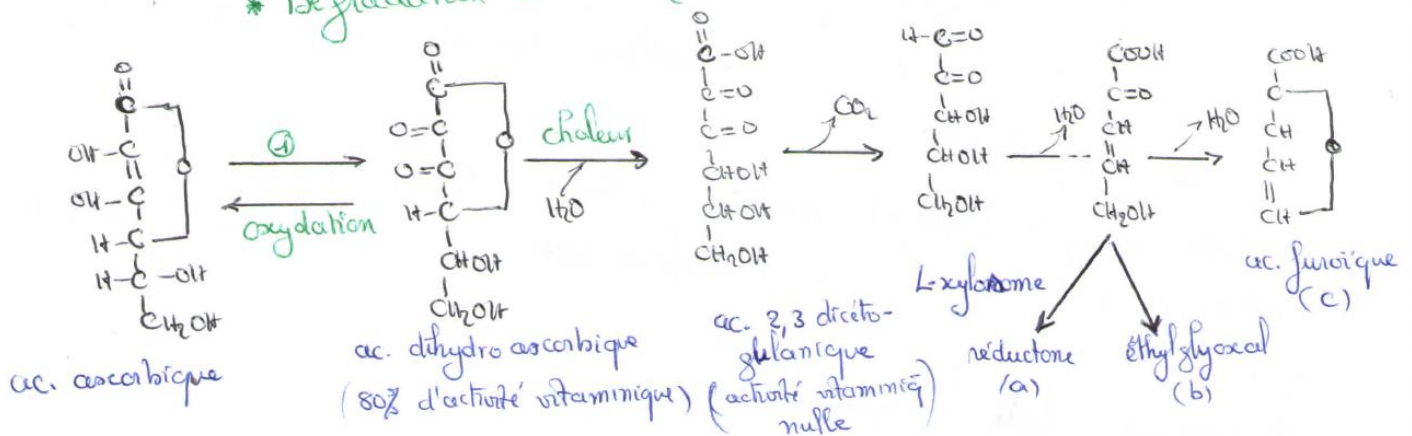 * Dégradation
O
C
OH-C
OH-C
H-C
H-C-OH
CH2OH
O
ac. ascorbique
①
oxydation
O
C
O=C
O=C
H-C
CHOH
CH2OH
O
ac. dihydro ascorbique
(80% d'activité vitaminique)
chaleur
H2O
O
C-OH
C=O
C=O
CHOH
CHOH
CH2OH
ac. 2,3 dicéto-
gulanique
(activité vitaminiq
nulle
CO2
H-C=O
C=O
CHOH
CHOH
CH2OH
L-xylosome
H2O
COOH
C=O
CH
CH
CH2OH
réductone
(a)
éthylglyoxal
(b)
H2O
COOH
C
CH
CH
CH
O
ac. furoïque
(c)